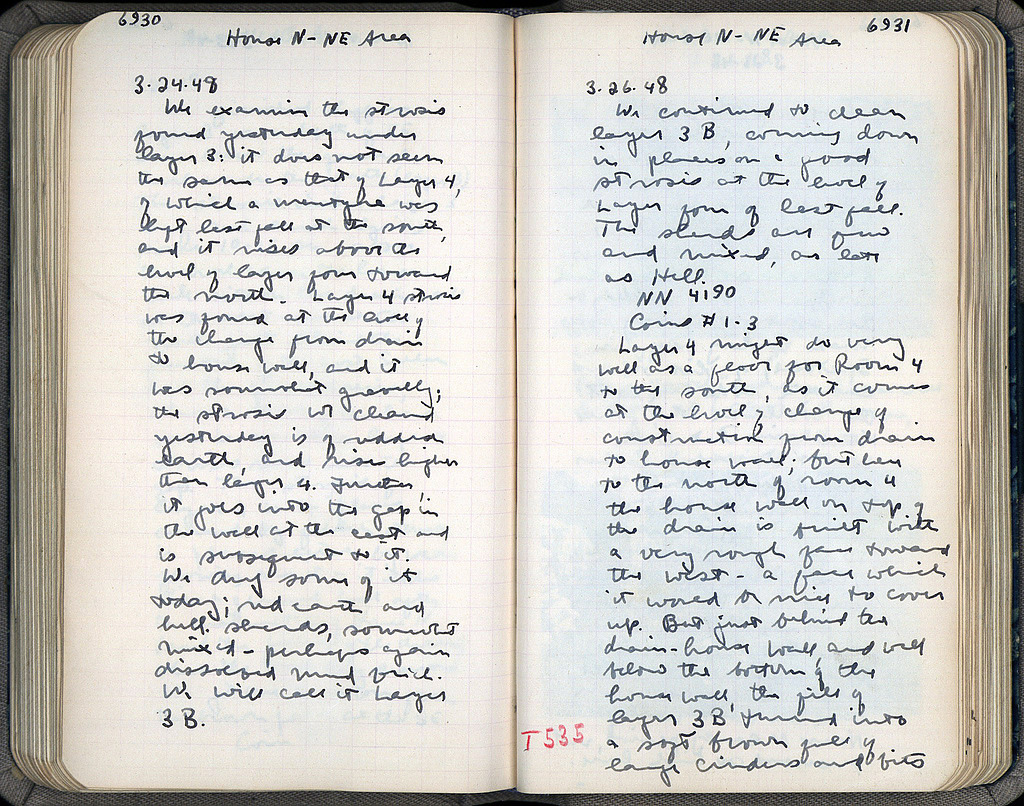 6930
House N-NE Area
3.24.48
We examine the strosis
found yesterday under
layer 3: it does not seem
the same as that of Layer 4,
of which a was
left last fall at the south,
and it rises above the
level of layer four toward
the north. Layer 4 strosis
was found at the level of
the change from drain
to house wall, and it
was somewhat gravelly;
the strosis we cleaned
yesterday is of reddish
earth, and rises higher
than layer 4. Further,
it goes into the gap in
the wall at the east and
is subsequent to it.
We dug some of it
today; red earth and
hell. sherds, somewhat
mixed - perhaps again
dissolved mud brick.
We will call it Layer
3 B.
6931
House N-NE Area
3.26.48
We continued to clean
layer 3 B, coming down
in places on a good
strosis at the level of
Layer four of last fall.
The sherds are few
and mixed, as late
as Hell.
NN 4190
Coins # 1-3
Layer 4 might do very
well as a floor for Room 4
to the south, as it comes
at the level of change of
construction from drain
to house wall; but here
to the north of room 4
the house wall on top of
the drain is built with
a very rough face toward
the west - a face which
it would be nice to cover
up. But just behind the
drain-house wall, and well
below the bottom of the
house wall the fill of
layer 3 B, turned into
a soft brown full of
large cinders and bits
T 535